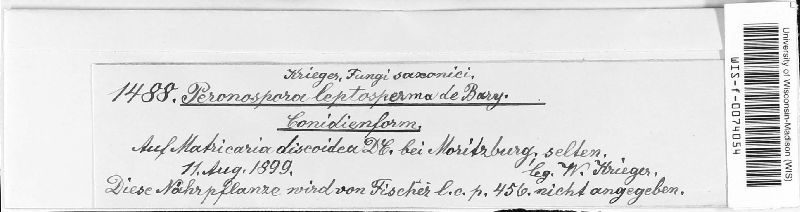 Krieger, Fungi saxonici.
1488. Peronospora leptosperma de Bary.
Conidienform.
Auf Matricaria discoidea DC. bei Moritzburg, selten.
11. Aug. 1899. leg. W. Krieger.
Diese Nährpflanze wird von Fischer l. c. p. 456. nicht angegeben.
University of Wisconsin-Madison (WIS)
WIS-f-0074054